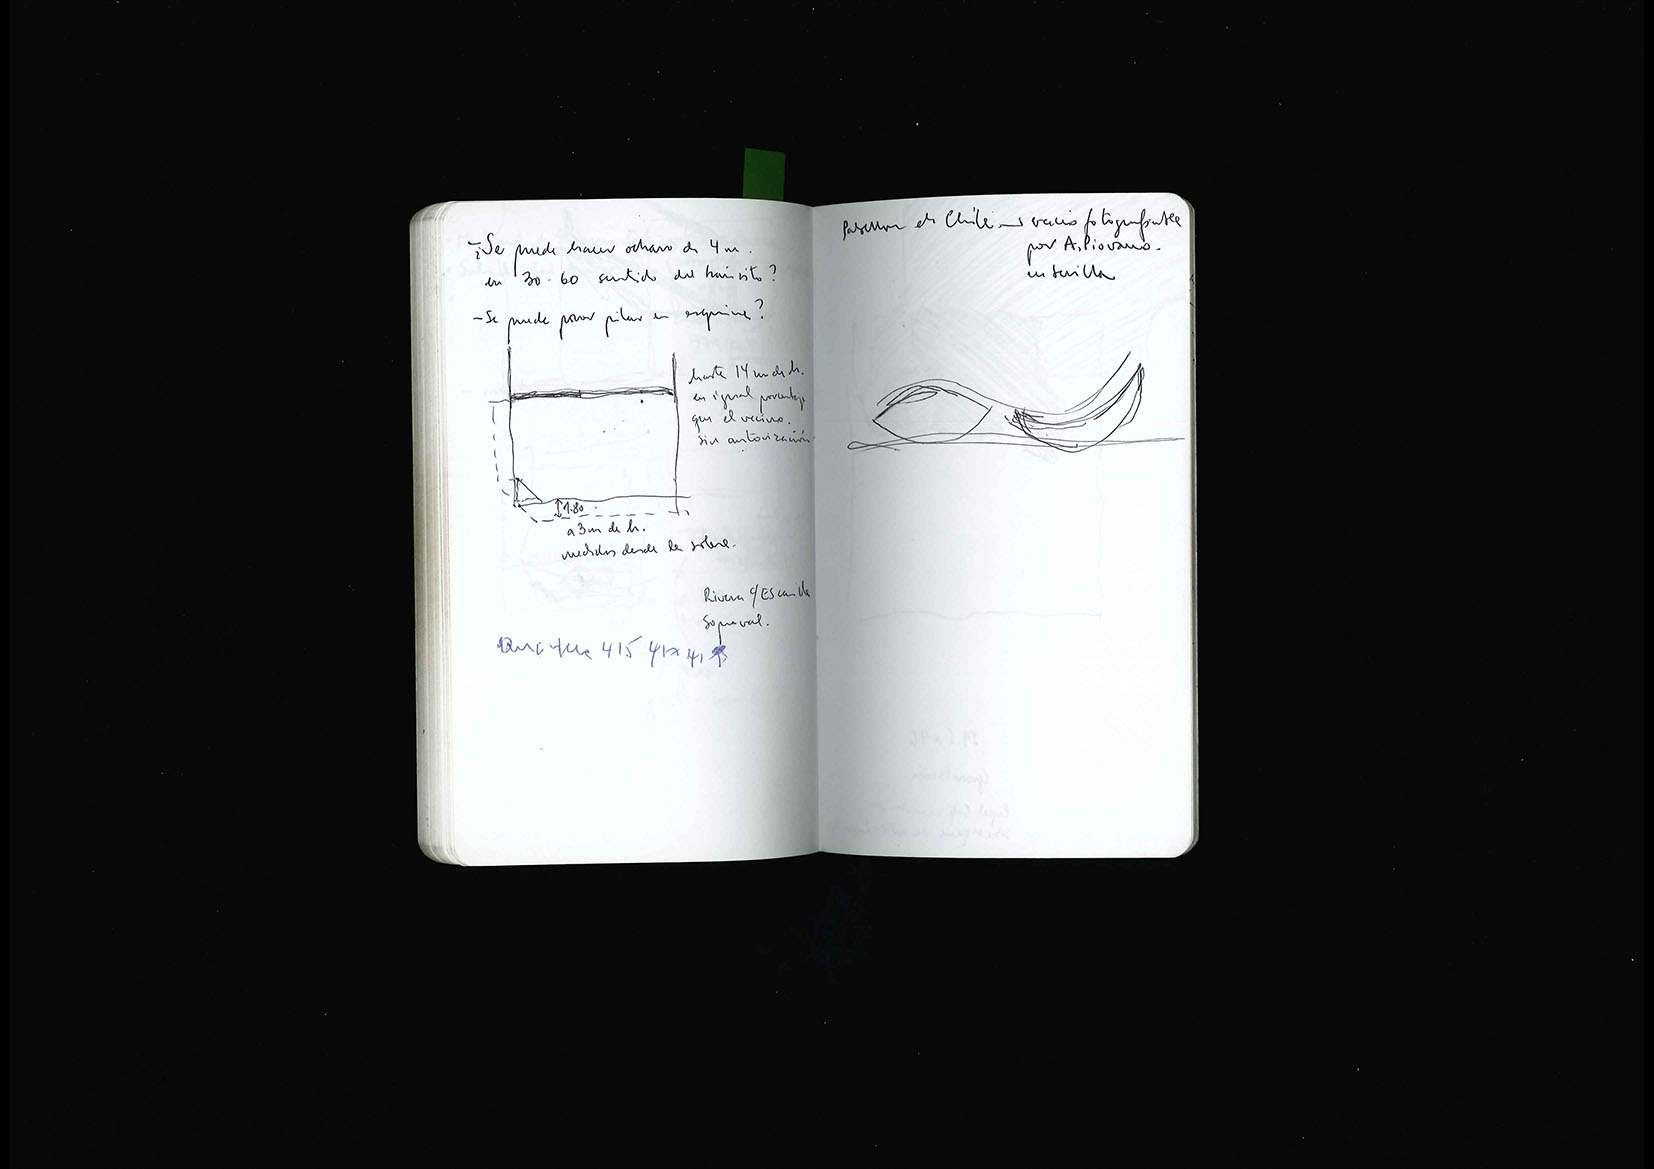 - ¿Se puede hacer ochavo de 4 m.
en 30·60 sentido del tránsito?
- Se puede poner pilar en esquina?
hasta 14 m de h.
en igual porcentaje
que el vecino.
sin autorización
1.80
a 3 m de h.
medidos desde la solera.
Rivera c/ Escanilla
Sopraval.
415
Pabellon de Chile vacio fotografiable
por A. Piovano.
en Sevilla